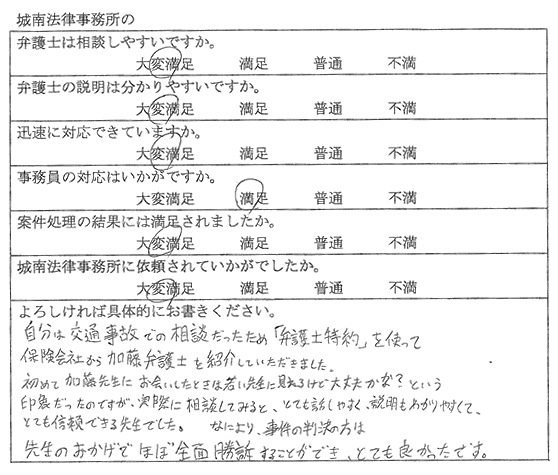 城南法律事務所の
弁護士は相談しやすいですか。
大変満足 満足 普通 不満
弁護士の説明は分かりやすいですか。
大変満足 満足 普通 不満
迅速に対応できていますか。
大変満足 満足 普通 不満
事務員の対応はいかがですか。
大変満足 満足 普通 不満
案件処理の結果には満足されましたか。
大変満足 満足 普通 不満
城南法律事務所に依頼されていかがでしたか。
大変満足 満足 普通 不満
よろしければ具体的にお書きください。
自分は交通事故での相談だったため「弁護士特約」を使って
保険会社から加藤弁護士を紹介していただきました。
初めて加藤先生にお会いしたときは若い先生に見えるけど大丈夫かな?という
印象だったのですが、実際に相談してみると、とても話しやすく、説明もわかりやすくて、
とても信頼できる先生でした。 なにより、事件の判決の方は
先生のおかげでほぼ全面勝訴することができ、とても良かったです。